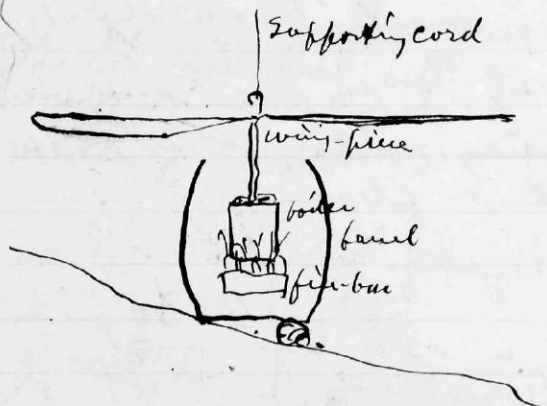 Supporting cord
wing-piece
boiler
barrel
fire-box